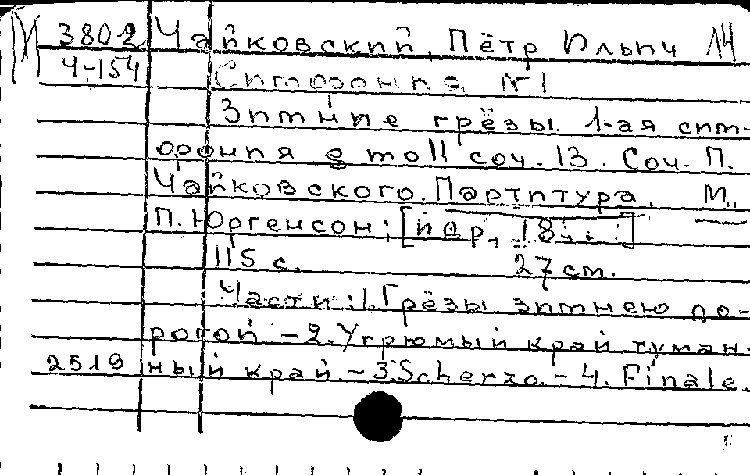 М 3802 Чайковский, Пётр Ильич 14
Ч-154 Симфония №1
Зимние грёзы 1-ая сим-
фония g moll соч. 13. Соч. П.
Чайковского. Партитура. М.,
П. Юргенсон; [ 18
115 с. 27 см.
Части: 1. Грёзы зимнею до-
рогой - 2. Угрюмый край туман-
2519 ный край. - 3. Scherzo. - 4. Finale.